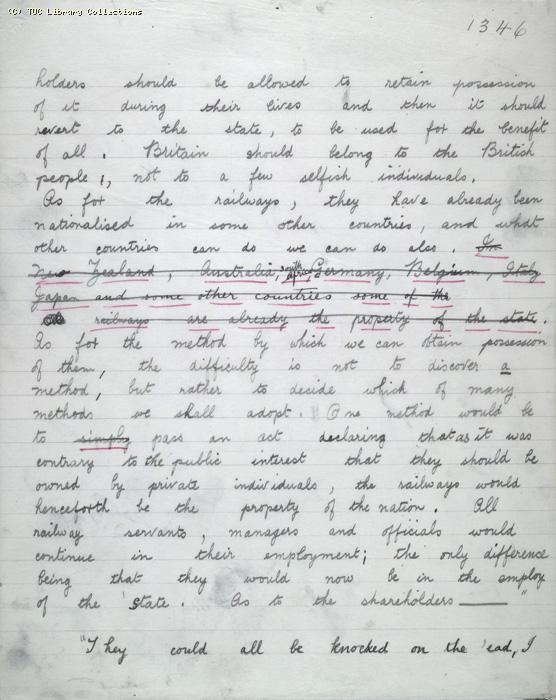 (C) TUC Library Collections
1346
holders should be allowed to retain possession
of it during their lives and then it should
revert to the state, to be used for the benefit
of all. Britain should belong to the British
people!, not to a few selfish individuals.
As for the railways, they have already been
nationalised in some other countries, and what
other countries can do we can do also. In
New Zealand, Australia, South Africa, Germany, Belgium, Italy
Japan and some other countries some of the
railways are already the property of the state.
As for the method by which we can obtain possession
of them, the difficulty is not to discover a
method, but rather to decide which of many
methods we shall adopt. One method would be
to simply pass an act declaring that as it was
contrary to the public interest that they should be
owned by private individuals, the railways would
henceforth be the property of the nation. All
railway servants, managers and officials would
continue in their employment; the only difference
being that they would now be in the employ
of the State. As to the shareholders ——"
"They could all be knocked on the 'ead, I